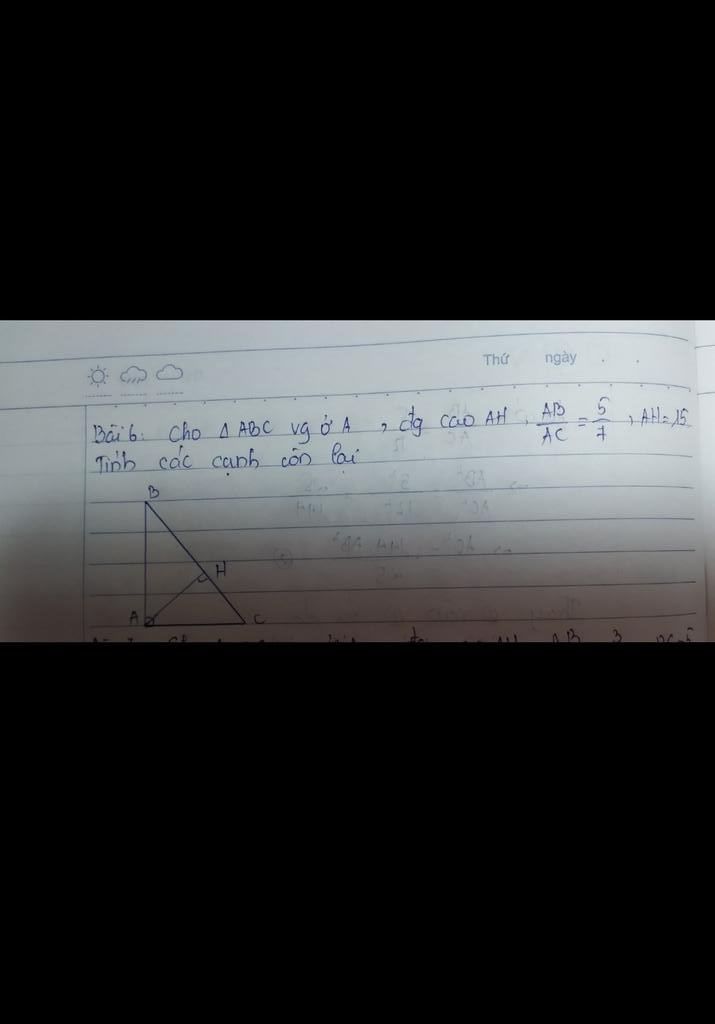 Thứ ngày . .
Bài 6: Cho Δ ABC vg ở A , đg cao AH , AB/AC = 5/7 , AH = 15
Tính các cạnh còn lại
B
H
A C